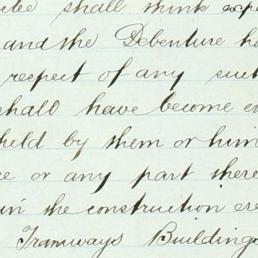 shall think expe
and the Debenture ho
respect of any such
shall have become en
held by them or him
or any part there
in the construction ere
Tramways Buildings